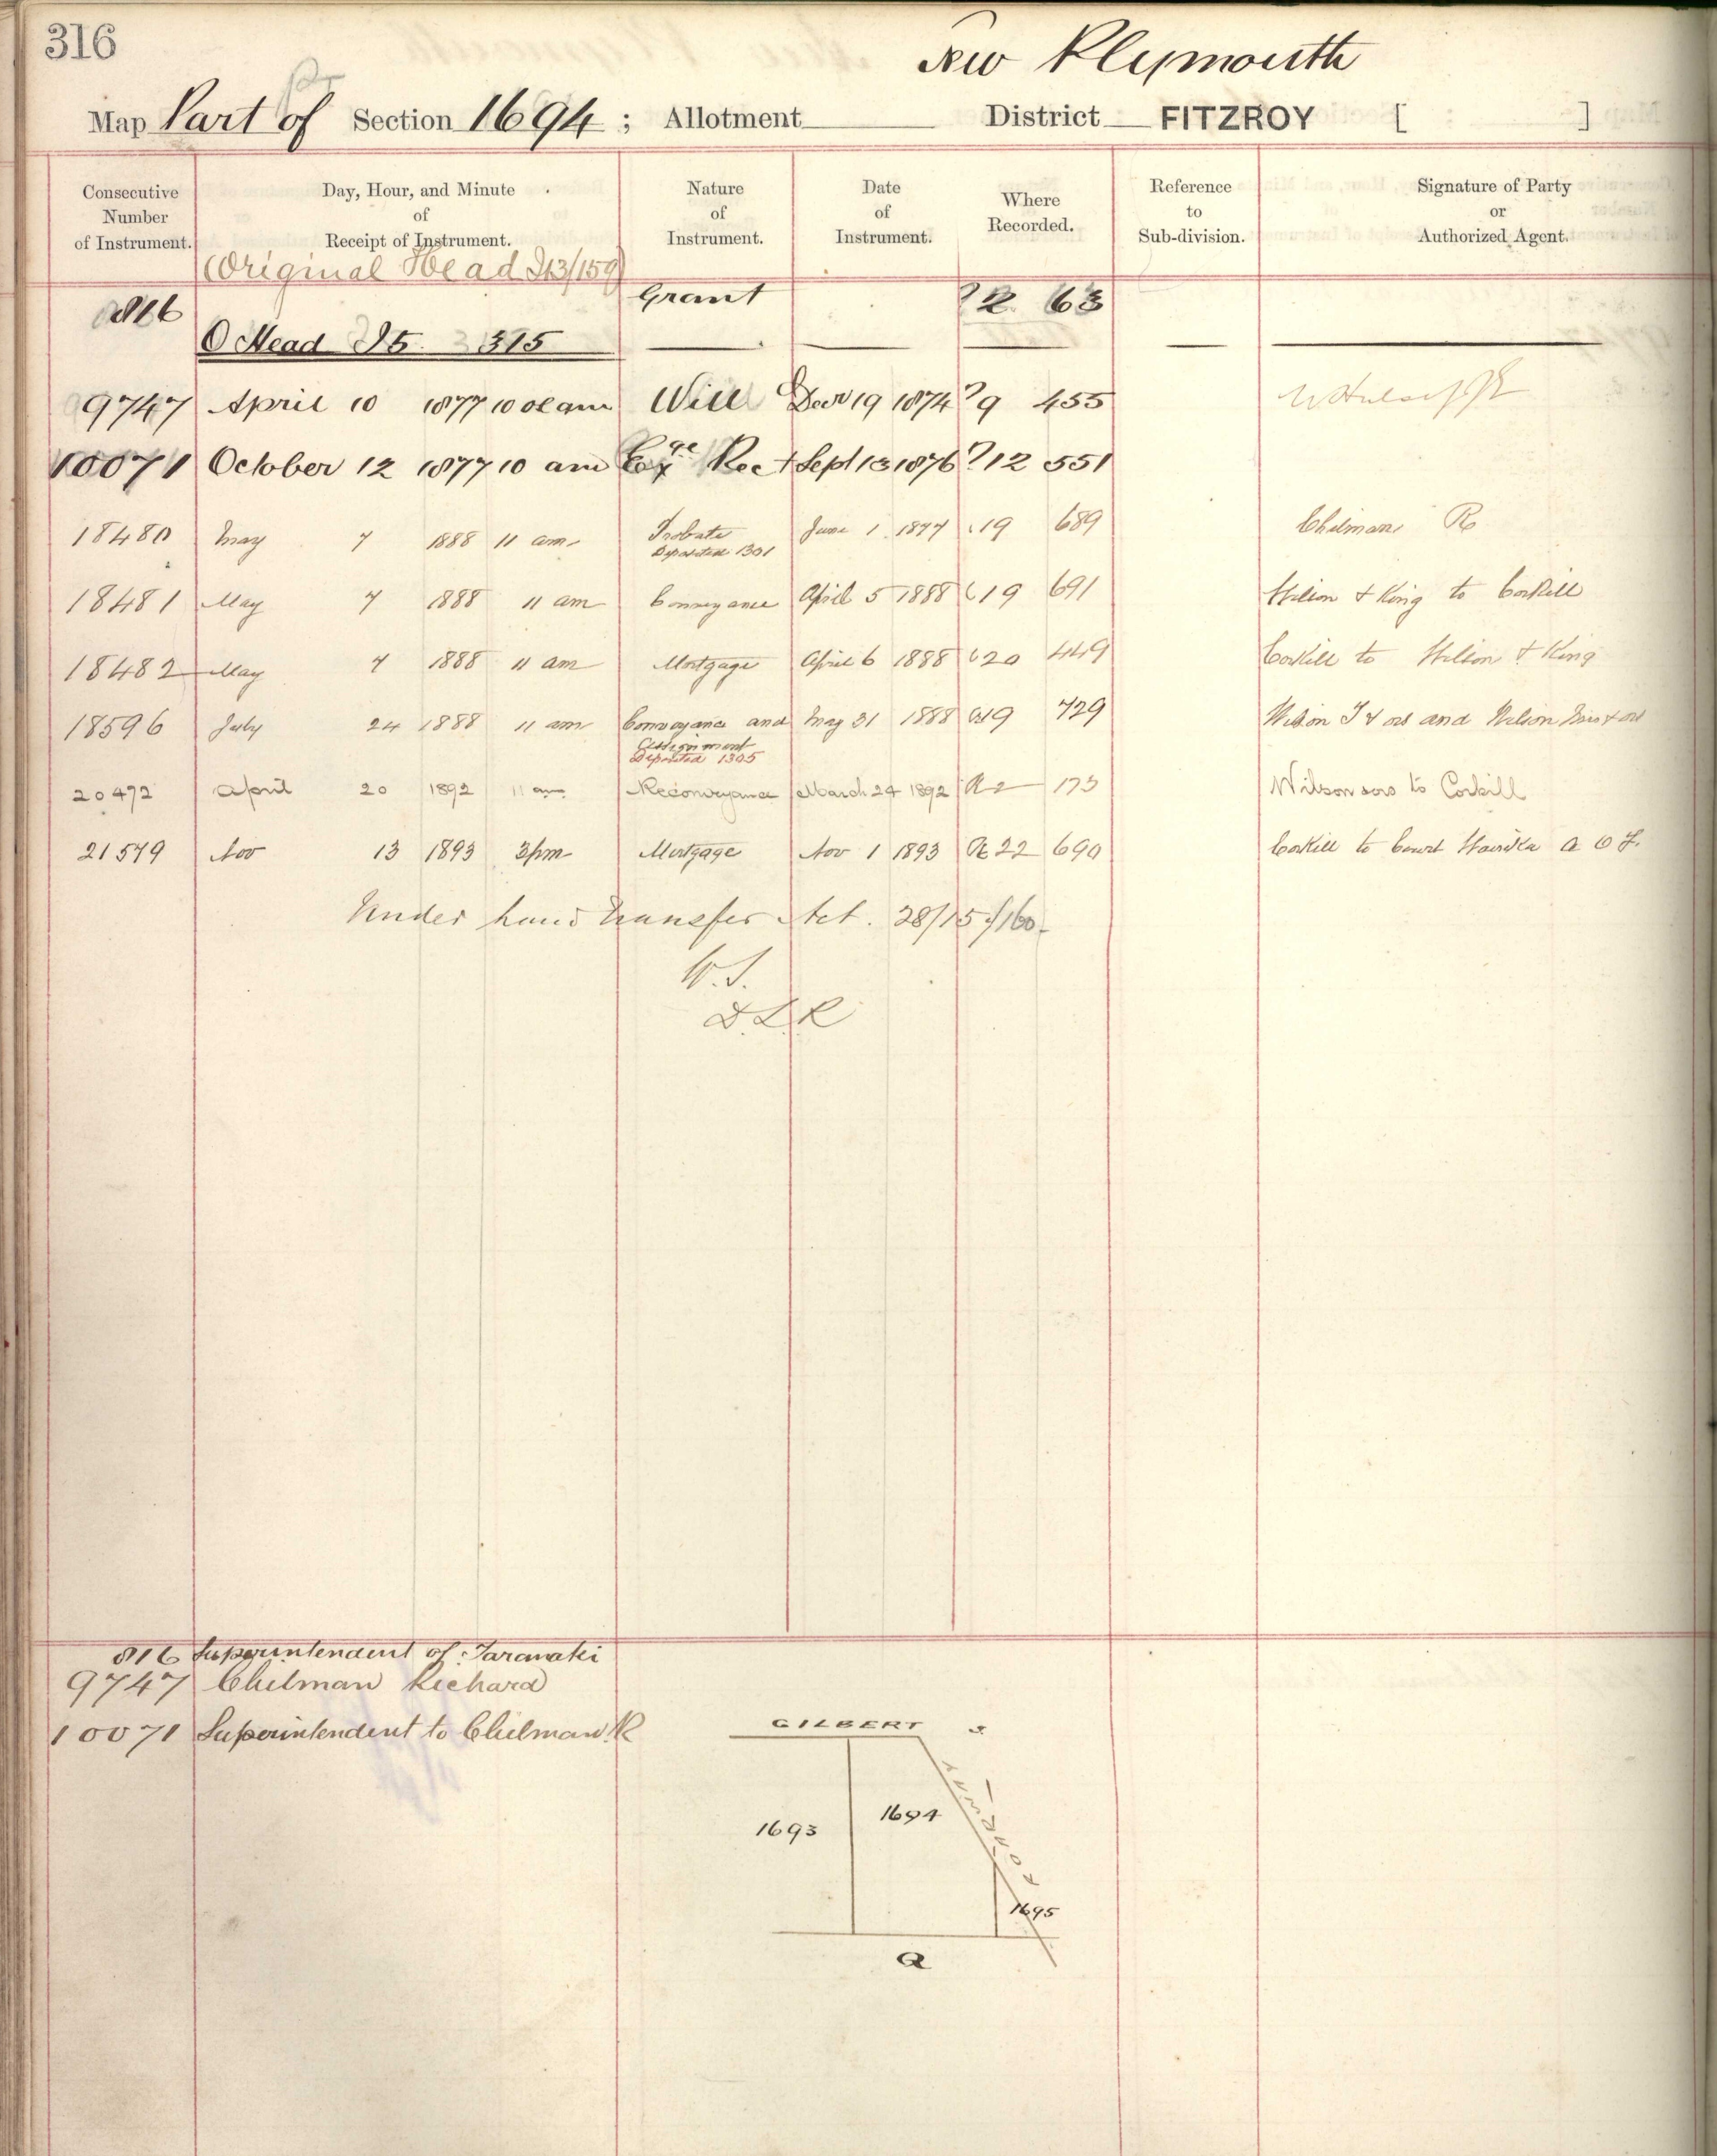 316
New Plymouth
Map Part of Section 1694 ; Allotment District FITZROY [ ]
Consecutive Number of Instrument.
Day, Hour, and Minute of Receipt of Instrument.
Nature of Instrument.
Date of Instrument.
Where Recorded.
Reference to Sub-division.
Signature of Party or Authorized Agent.
(Original Head I13/159)
816 Grant 2 63
O Head I5. 315
9747 April 10 1877 10 am Will Decr 19 1874 9 455
10071 October 12 1877 10 am Coyce Rect Sept 13 1876 12 551
18480 May 7 1888 11 am Probate June 1 1877 19 689 Chilman R
Deposited 1301
18481 May 7 1888 11 am Conveyance April 5 1888 19 691 & King to Corkill
18482 May 7 1888 11 am Mortgage April 6 1888 20 449 Corkill to & King
18596 July 24 1888 11 am Conveyance and May 31 1888 19 729 Wilson J & ors and Wilson & ors
Assignment
Deposited 1305
20472 April 20 1892 11 am Reconveyance March 24 1892 R 2 173 Wilson & ors to Corkill
21579 Nov 13 1893 3 pm Mortgage Nov 1 1893 R 22 690 Corkill to Court A O F.
Under Land Transfer Act. 28/15 /160
W.S.
D.L.R
816 Superintendent of Taranaki
9747 Chilman Richard
10071 Superintendent to Chilman R
GILBERT S
1693
1694
1695
a